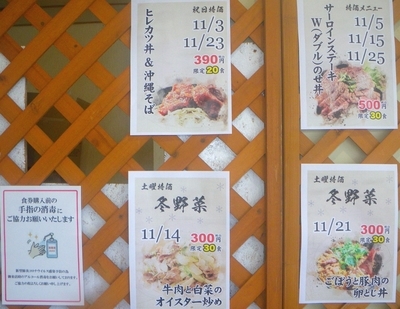 祝日特酒
11/3
11/23
ヒレカツ丼&沖縄そば
390円
限定20食
特酒メニュー
11/5
11/15
11/25
サーロインステーキ
W(ダブル)のせ丼
500円
限定30食
食券購入前の
手指の消毒に
ご協力お願いいたします
土曜特酒
冬野菜
11/14
300円
限定30食
牛肉と白菜の
オイスター炒め
土曜特酒
冬野菜
11/21
300円
限定30食
ごぼうと豚肉の
卵とじ丼